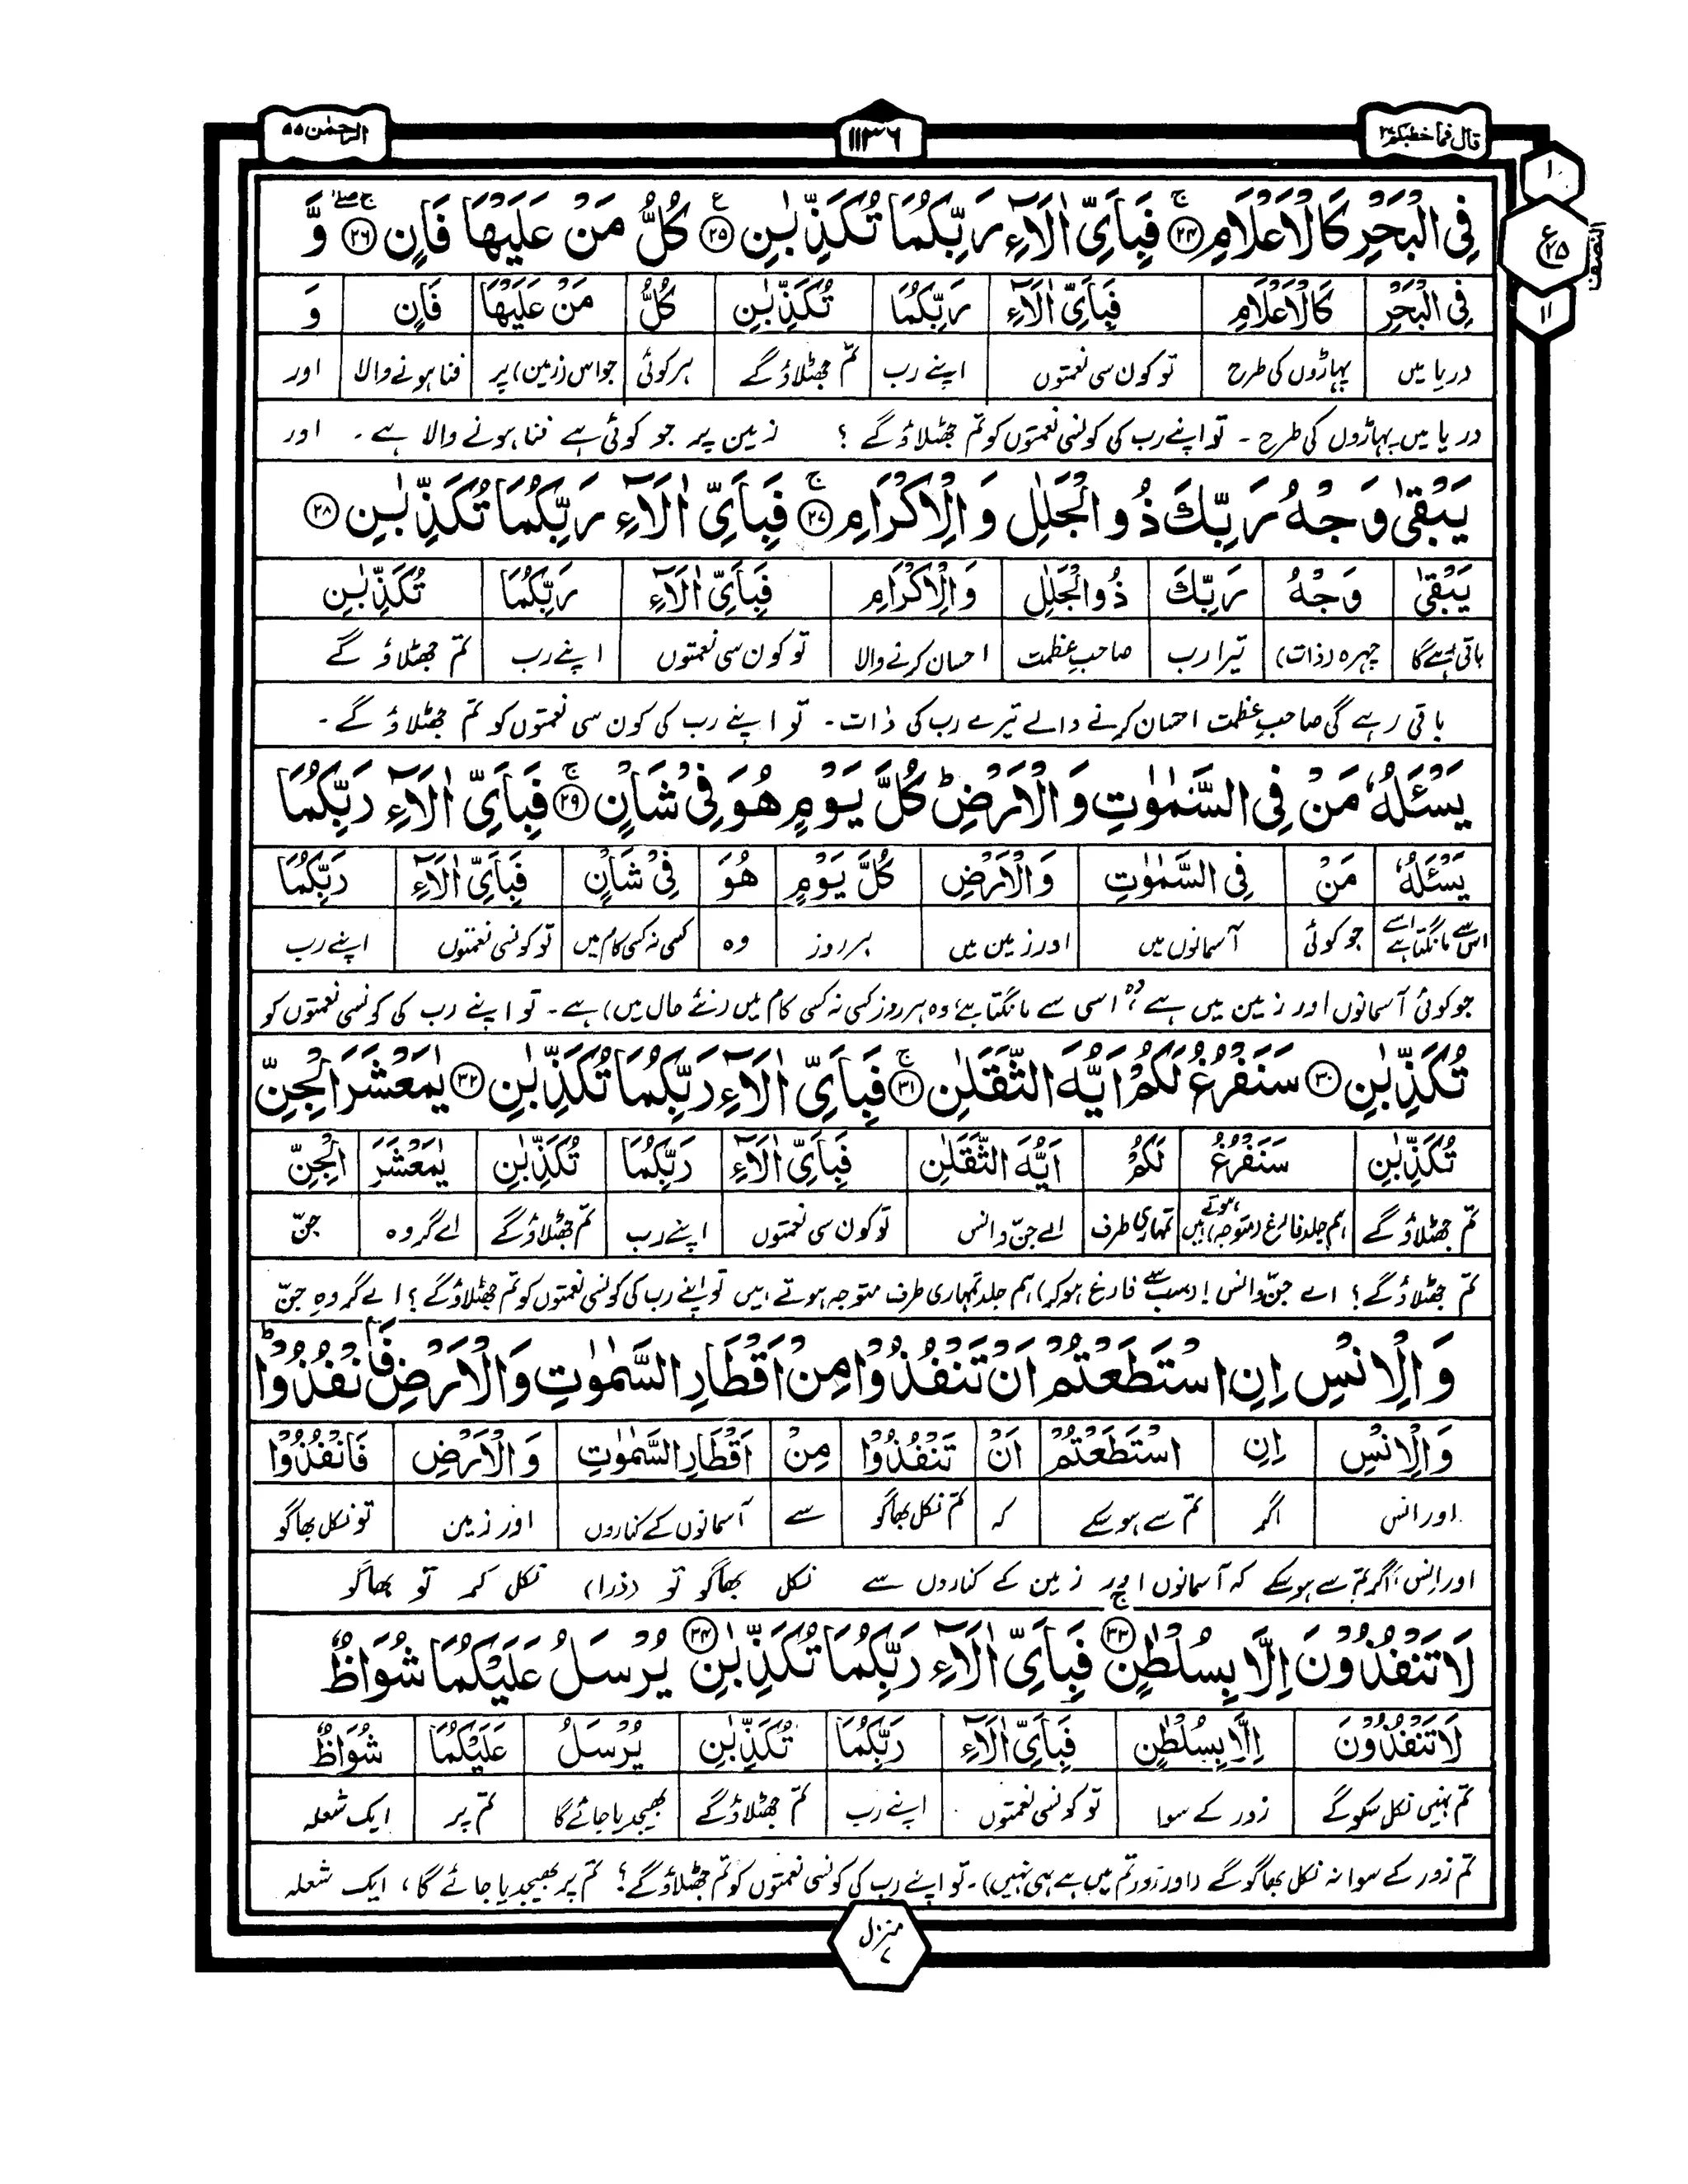 قال فما خطبكم ٢٧
١١٣٦
الرحمٰن ٥٥
١٠
ع ٢٥
١١
النصف
فِی الْبَحْرِ كَالْاَعْلَامِ ۚ﴿٢٤﴾ فَبِاَیِّ اٰلَآءِ رَبِّكُمَا تُكَذِّبٰنِ ﴿٢٥﴾ ع كُلُّ مَنْ عَلَیْهَا فَانٍ ﴿٢٦﴾ ۚۖ وَّ
فِی الْبَحْرِ | كَالْاَعْلَامِ | فَبِاَیِّ اٰلَآءِ | رَبِّكُمَا | تُكَذِّبٰنِ | كُلُّ | مَنْ عَلَیْهَا | فَانٍ | وَ
دریا میں | پہاڑوں کی طرح | تو کون سی نعمتوں | اپنے رب | تم جھٹلاؤ گے | ہر کوئی | جو اس (زمین) پر | فنا ہونے والا | اور
دریا میں پہاڑوں کی طرح ۔ تو اپنے رب کی کونسی نعمتوں کو تم جھٹلاؤ گے ؟ زمین پر جو کوئی ہے فنا ہونے والا ہے ۔ اور
یَبْقٰی وَجْهُ رَبِّكَ ذُو الْجَلٰلِ وَ الْاِكْرَامِ ۚ﴿٢٧﴾ فَبِاَیِّ اٰلَآءِ رَبِّكُمَا تُكَذِّبٰنِ ﴿٢٨﴾
یَبْقٰی | وَجْهُ | رَبِّكَ | ذُو الْجَلٰلِ | وَالْاِكْرَامِ | فَبِاَیِّ اٰلَآءِ | رَبِّكُمَا | تُكَذِّبٰنِ
باقی رہے گا | چہرہ (ذات) | تیرا رب | صاحبِ عظمت | احسان کرنے والا | تو کون سی نعمتوں | اپنے رب | تم جھٹلاؤ گے
باقی رہے گی صاحبِ عظمت احسان کرنے والے تیرے رب کی ذات ۔ تو اپنے رب کی کون سی نعمتوں کو تم جھٹلاؤ گے ۔
یَسْـَٔلُهٗ مَنْ فِی السَّمٰوٰتِ وَ الْاَرْضِ ؕ كُلَّ یَوْمٍ هُوَ فِیْ شَاْنٍ ۚ﴿٢٩﴾ فَبِاَیِّ اٰلَآءِ رَبِّكُمَا
یَسْـَٔلُهٗ | مَنْ | فِی السَّمٰوٰتِ | وَالْاَرْضِ | كُلَّ یَوْمٍ | هُوَ | فِیْ شَاْنٍ | فَبِاَیِّ اٰلَآءِ | رَبِّكُمَا
اس سے مانگتا ہے | جو کوئی | آسمانوں میں | اور زمین میں | ہر روز | وہ | کسی نہ کسی کام میں | تو کونسی نعمتوں | اپنے رب
جو کوئی آسمانوں اور زمین میں ہے، وہ اسی سے مانگتا ہے، وہ ہر روز کسی نہ کسی کام میں (نئے حال میں) ہے ۔ تو اپنے رب کی کونسی نعمتوں کو
تُكَذِّبٰنِ ﴿٣٠﴾ سَنَفْرُغُ لَكُمْ اَیُّهَ الثَّقَلٰنِ ۚ﴿٣١﴾ فَبِاَیِّ اٰلَآءِ رَبِّكُمَا تُكَذِّبٰنِ ﴿٣٢﴾ یٰمَعْشَرَ الْجِنِّ
تُكَذِّبٰنِ | سَنَفْرُغُ | لَكُمْ | اَیُّهَ الثَّقَلٰنِ | فَبِاَیِّ اٰلَآءِ | رَبِّكُمَا | تُكَذِّبٰنِ | یٰمَعْشَرَ | الْجِنِّ
تم جھٹلاؤ گے | ہم جلد فارغ (متوجہ) ہوتے ہیں | تمہاری طرف | اے جن و انس | تو کون سی نعمتوں | اپنے رب | تم جھٹلاؤ گے | اے گروہ | جنّ
تم جھٹلاؤ گے ؟ اے جن و انس ! (سب سے فارغ ہو کر) ہم جلد تمہاری طرف متوجہ ہوتے ہیں تو اپنے رب کی کونسی نعمتوں کو تم جھٹلاؤ گے ؟ اے گروہِ جنّ
وَ الْاِنْسِ اِنِ اسْتَطَعْتُمْ اَنْ تَنْفُذُوْا مِنْ اَقْطَارِ السَّمٰوٰتِ وَ الْاَرْضِ فَانْفُذُوْا ؕ
وَالْاِنْسِ | اِنِ | اسْتَطَعْتُمْ | اَنْ | تَنْفُذُوْا | مِنْ | اَقْطَارِ السَّمٰوٰتِ | وَالْاَرْضِ | فَانْفُذُوْا
اور انس | اگر | تم سے ہو سکے | کہ | تم نکل بھاگو | سے | آسمانوں کے کناروں | اور زمین | تو نکل بھاگو
اور انس ! اگر تم سے ہو سکے کہ آسمانوں اور زمین کے کناروں سے نکل بھاگو تو (ذرا) نکل کر تو بھاگو
لَا تَنْفُذُوْنَ اِلَّا بِسُلْطٰنٍ ۚ﴿٣٣﴾ فَبِاَیِّ اٰلَآءِ رَبِّكُمَا تُكَذِّبٰنِ ﴿٣٤﴾ یُرْسَلُ عَلَیْكُمَا شُوَاظٌ
لَا تَنْفُذُوْنَ | اِلَّا بِسُلْطٰنٍ | فَبِاَیِّ اٰلَآءِ | رَبِّكُمَا | تُكَذِّبٰنِ | یُرْسَلُ | عَلَیْكُمَا | شُوَاظٌ
تم نہیں نکل سکو گے | زور کے سوا | تو کونسی نعمتوں | اپنے رب | تم جھٹلاؤ گے | بھیجدیا جائے گا | تم پر | ایک شعلہ
تم زور کے سوا نہ نکل بھاگو گے (اور زور تم میں ہے ہی نہیں) ۔ تو اپنے رب کی کونسی نعمتوں کو تم جھٹلاؤ گے ؟ تم پر بھیجدیا جائے گا ، ایک شعلہ
منزل ٧